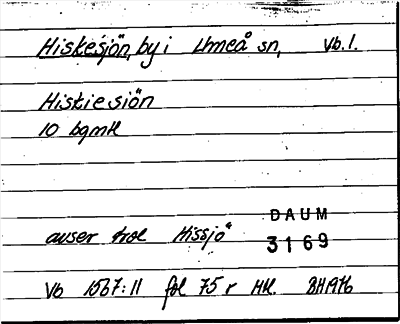 Hiskesjön, by i Umeå sn, Vb.l.
Hiskiesiön
10 bgmtl
avser trol Hissjö
DAUM
3169
Vb 1567:11 fol 75 r Hkl. BH1976